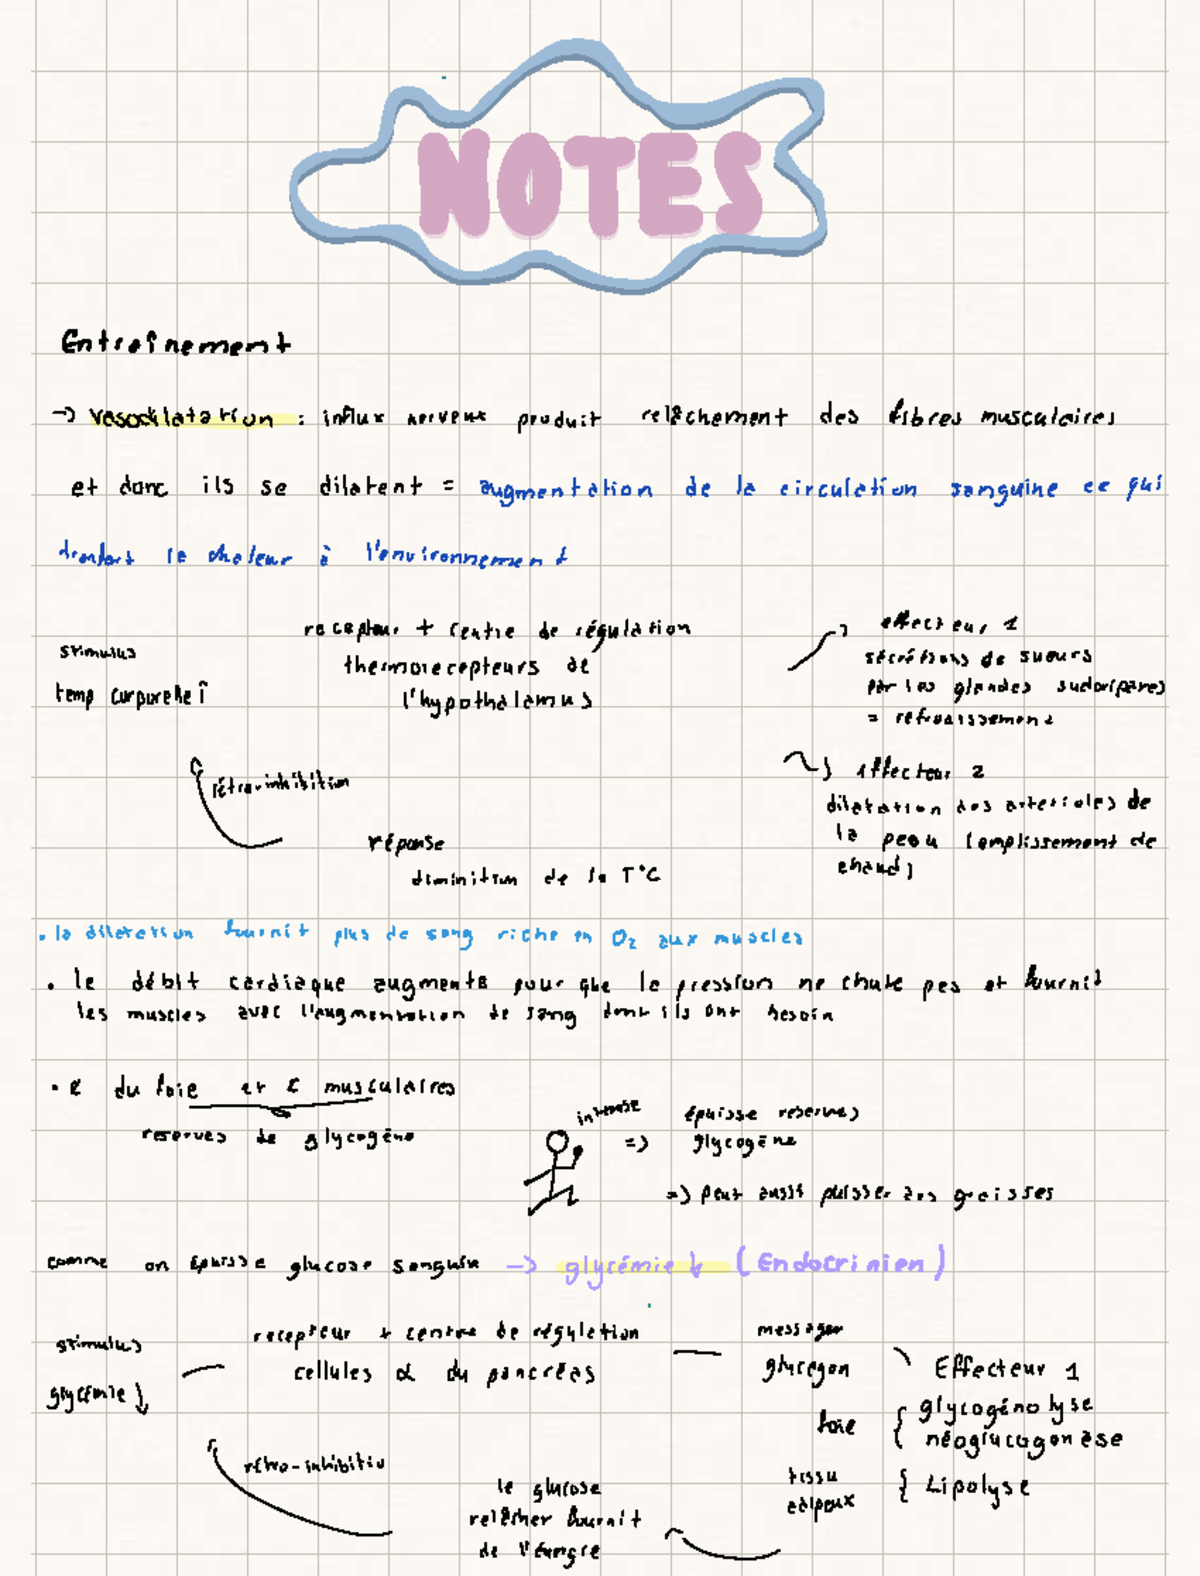 NOTES
Entraînement
→ vasodilatation : influx nerveux produit relâchement des fibres musculaires
et donc ils se dilatent = augmentation de la circulation sanguine ce qui
transfert la chaleur à l'environnement
stimulus
temp corporelle ↑
recepteur + centre de régulation
thermorecepteurs de
l'hypothalamus
effecteur 1
sécrétions de sueurs
par les glandes sudoripares
= refroidissement
effecteur 2
dilatation des arterioles de
la peau (emplissement de
chaud)
rétro-inhibition
réponse
diminition de la T°C
• la dilatation fournit plus de sang riche en O₂ aux muscles
• le débit cardiaque augmente pour que la pression ne chute pas et fournit
les muscles avec l'augmentation de sang dont ils ont besoin
• C du foie et C musculaires
reserves de glycogène
intense
=> épuisse reserves
glycogène
=> peut aussi puisser des graisses
comme on épuisse glucose sanguin → glycémie ↓ (Endocrinien)
stimulus
glycémie ↓
recepteur + centre de régulation
cellules α du pancréas
messager
glucagon
Effecteur 1
foie { glycogénolyse
néoglucogonèse
tissu
adipeux { Lipolyse
rétro-inhibitio
le glucose
relâcher fournit
de l'énergie